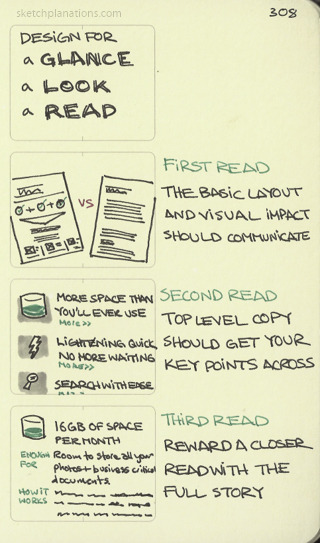 sketchplanations.com
308
DESIGN FOR
a GLANCE
a LOOK
a READ
VS
FIRST READ
THE BASIC LAYOUT
AND VISUAL IMPACT
SHOULD COMMUNICATE
MORE SPACE THAN
YOU'LL EVER USE
More >>
LIGHTENING QUICK,
NO MORE WAITING
MORE>>
SEARCH WITH EASE
SECOND READ
TOP LEVEL COPY
SHOULD GET YOUR
KEY POINTS ACROSS
16GB OF SPACE
PER MONTH
ENOUGH
FOR
Room to store all your
photos + business critical
documents
HOW IT
WORKS
THIRD READ
REWARD A CLOSER
READ WITH THE
FULL STORY